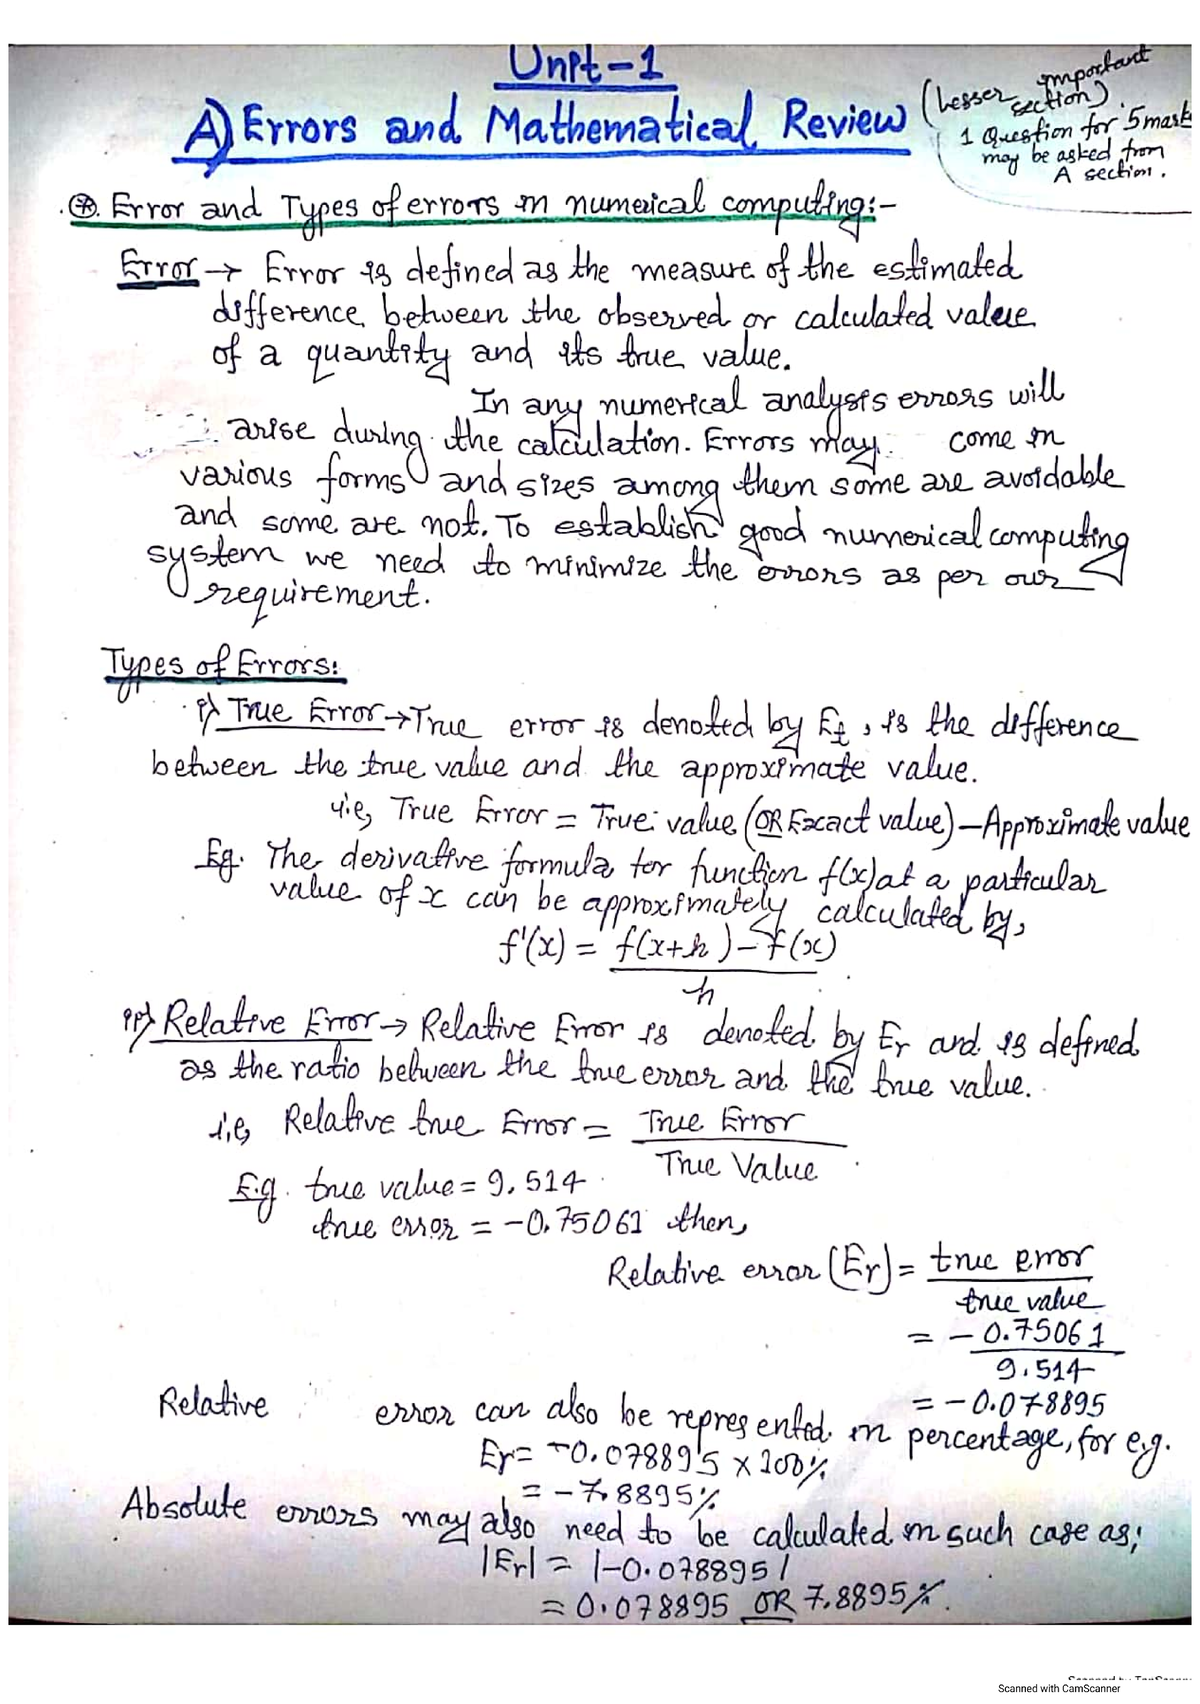 Unit-1
A) Errors and Mathematical Review
(Lesser important
section).
1 Question for 5 mark
may be asked from
A section.
⊛. Error and Types of errors in numerical computing:-
Error → Error is defined as the measure of the estimated
difference between the observed or calculated value
of a quantity and its true value.
In any numerical analysis errors will
arise during the calculation. Errors may come in
various forms and sizes among them some are avoidable
and some are not. To establish good numerical computing
system we need to minimize the errors as per our
requirement.
Types of Errors:
i) True Error → True error is denoted by Et, is the difference
between the true value and the approximate value.
i.e, True Error = True value (OR Exact value) – Approximate value
Eg. The derivative formula for function f(x) at a particular
value of x can be approximately calculated by,
f'(x) = f(x+h) – f(x)
h
ii) Relative Error → Relative Error is denoted by Er and is defined
as the ratio between the true error and the true value.
i.e, Relative true Error = True Error
True Value
E.g. true value = 9.514
true error = -0.75061 then,
Relative error (Er) = true error
true value
= - 0.75061
9.514
= - 0.078895
Relative error can also be represented in percentage, for e.g.
Er = -0.078895 × 100%
= - 7.8895%
Absolute errors may also need to be calculated in such case as;
|Er| = |-0.078895|
= 0.078895 OR 7.8895%.
Scanned with CamScanner